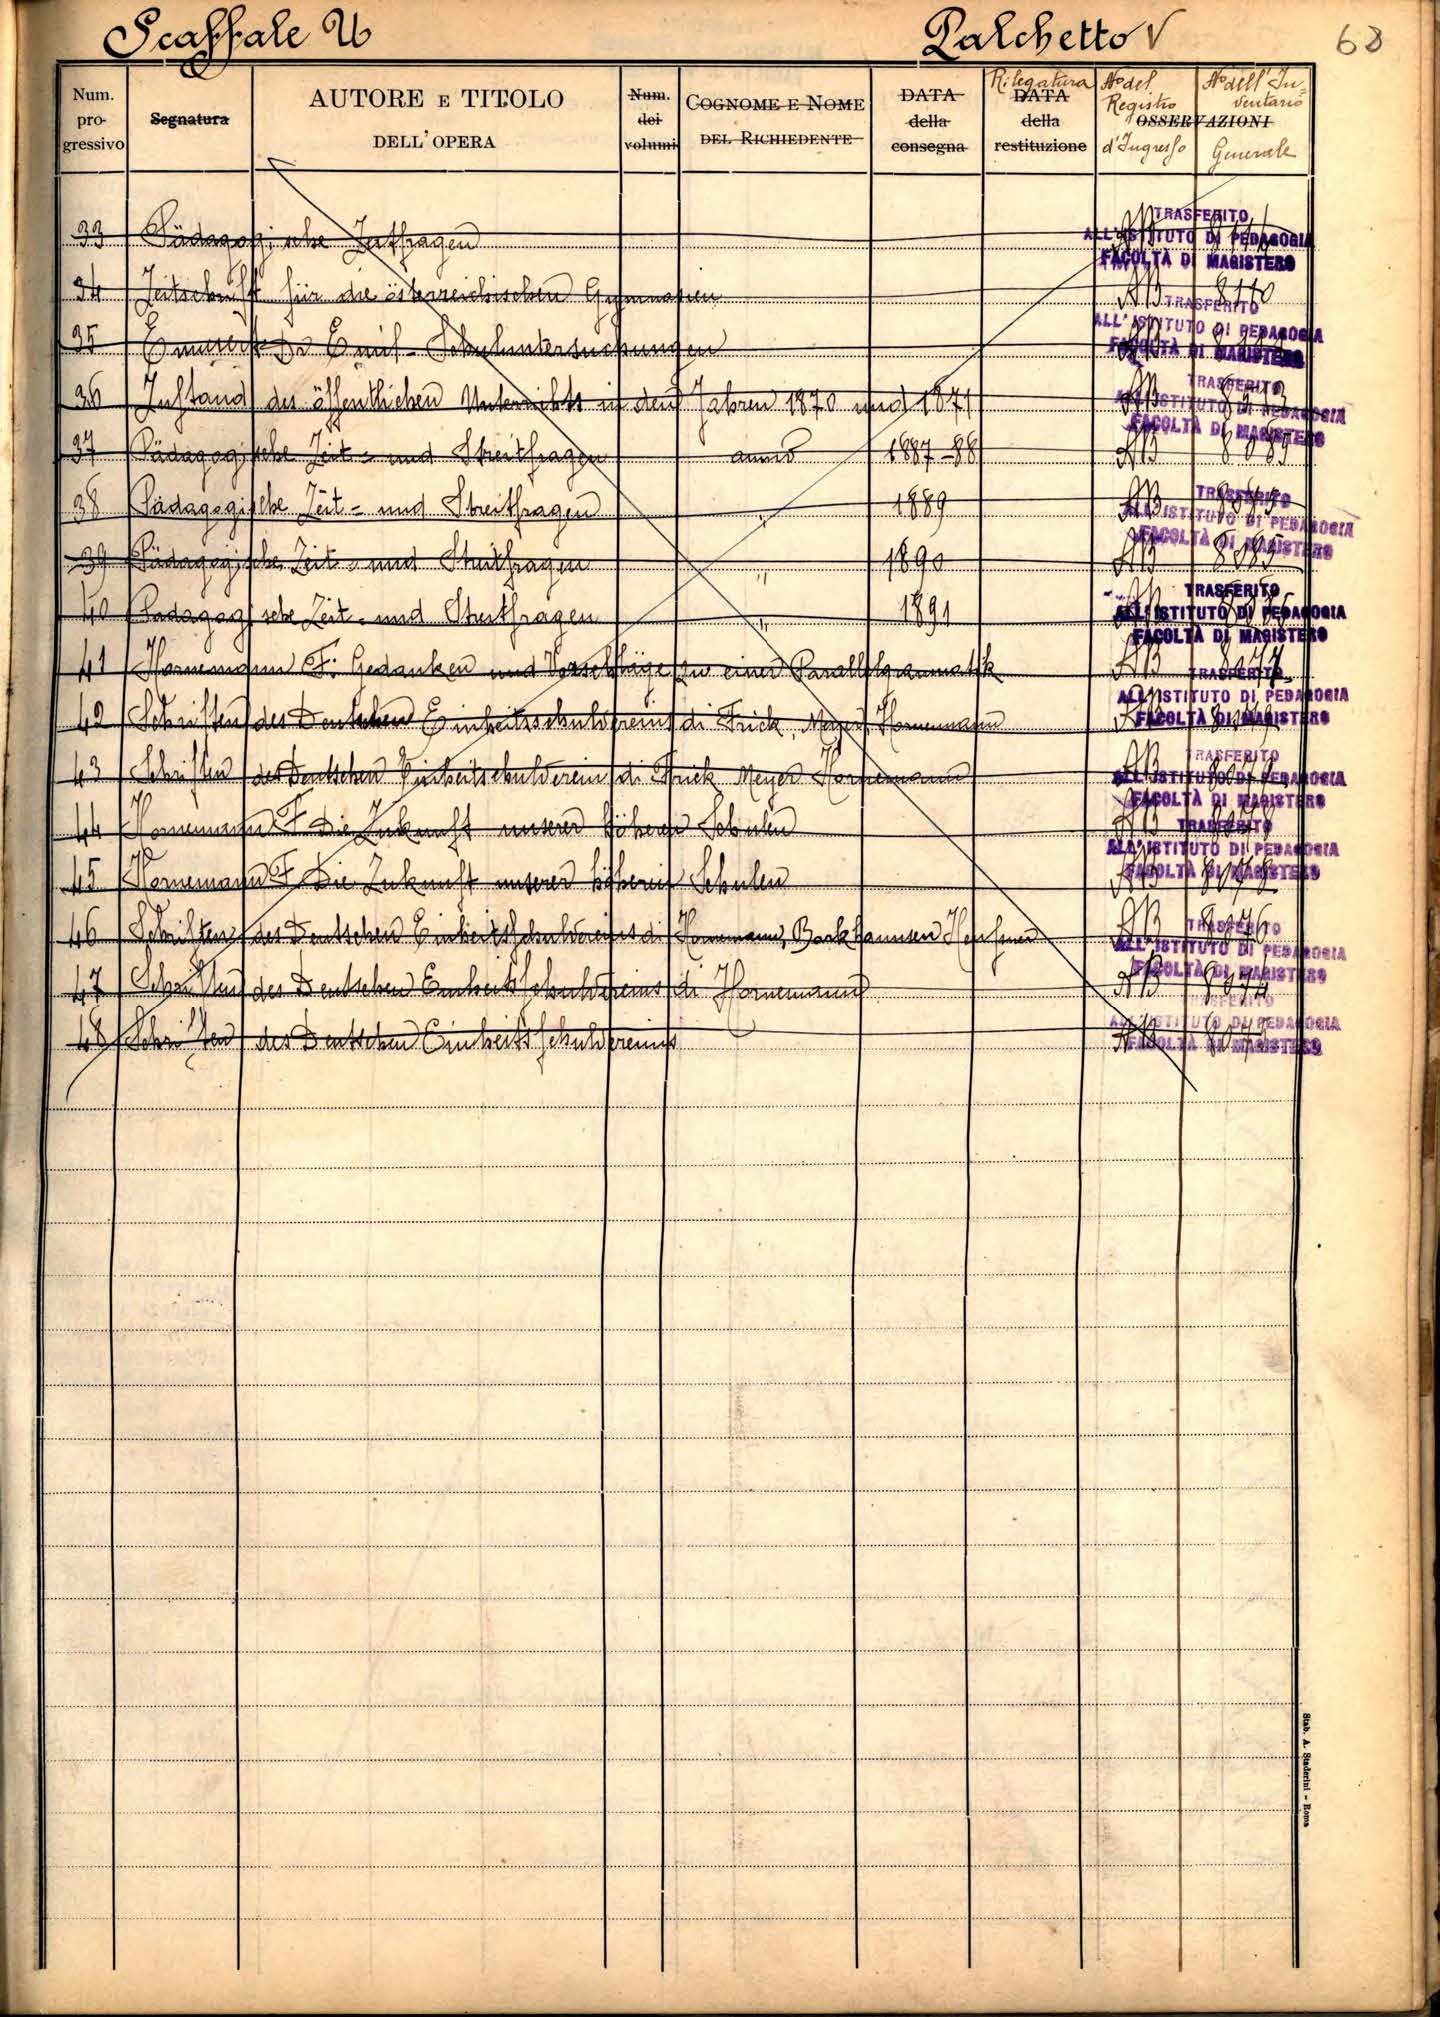 Scaffale U Palchetto V 68
Num. progressivo Segnatura AUTORE E TITOLO DELL'OPERA Num. dei volumi COGNOME E NOME DEL RICHIEDENTE DATA della consegna Rilegatura DATA della restituzione No del Registro d'Ingresso OSSERVAZIONI No dell'Inventario Generale
33 Pädagogische Zeitfragen AB
TRASFERITO
ALL'ISTITUTO DI PEDAGOGIA
FACOLTÀ DI MAGISTERO
34 Zeitschrift für die österreichischen Gymnasien AB
TRASFERITO
ALL'ISTITUTO DI PEDAGOGIA
35 Emil Schuluntersuchungen AB
FACOLTÀ DI MAGISTERO
36 Zustand des öffentlichen Unterrichts in den Jahren 1870 und 1871 AB
TRASFERITO
ALL'ISTITUTO DI PEDAGOGIA
FACOLTÀ DI MAGISTERO
37 Pädagogische Zeit- und Streitfragen anno 1887-88 AB
38 Pädagogische Zeit- und Streitfragen " 1889 AB
TRASFERITO
ALL'ISTITUTO DI PEDAGOGIA
FACOLTÀ DI MAGISTERO
39 Pädagogische Zeit- und Streitfragen " 1890 AB 8085
40 Pädagogische Zeit- und Streitfragen " 1891 AB
TRASFERITO
ALL'ISTITUTO DI PEDAGOGIA
FACOLTÀ DI MAGISTERO
41 Hornemann F. Gedanken und Vorschläge zu einer Parallelgrammatik AB 8077
TRASFERITO
ALL'ISTITUTO DI PEDAGOGIA
42 Schriften des Deutschen Einheitsschulvereins di Frick, Meyer, Hornemann AB
FACOLTÀ DI MAGISTERO
43 Schriften des Deutschen Einheitschulverein di Frick Meyer Hornemann AB
TRASFERITO
ALL'ISTITUTO DI PEDAGOGIA
FACOLTÀ DI MAGISTERO
44 Hornemann F Die Zukunft unserer höheren Schulen AB
TRASFERITO
ALL'ISTITUTO DI PEDAGOGIA
45 Hornemann F Die Zukunft unserer höheren Schulen AB 8078
FACOLTÀ DI MAGISTERO
46 Schriften des Deutschen Einheitsschulvereins di Hornemann, AB 8076
TRASFERITO
ALL'ISTITUTO DI PEDAGOGIA
FACOLTÀ DI MAGISTERO
47 Schriften des Deutschen Einheitsschulvereins di Hornemann AB 8074
TRASFERITO
ALL'ISTITUTO DI PEDAGOGIA
48 Schriften des Deutschen Einheitsschulvereins AB
FACOLTÀ DI MAGISTERO
Stab. A. Staderini - Roma